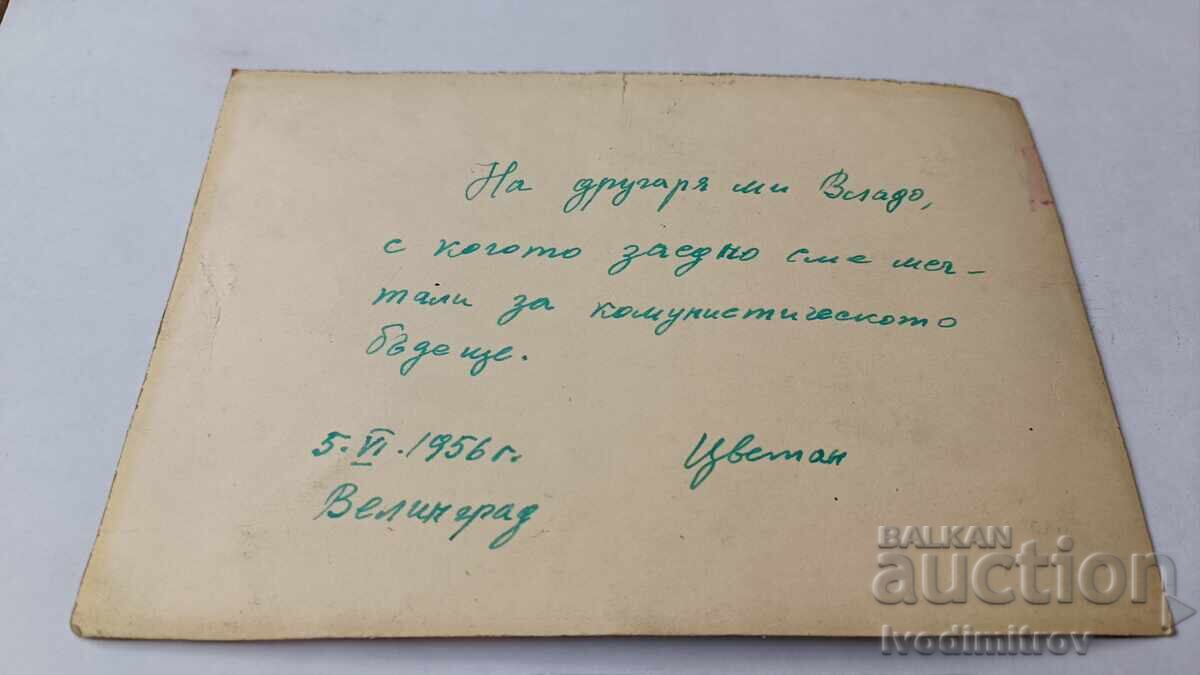 На другаря ми Владо,
с когото заедно сме меч-
тали за комунистическото
бъдеще.
5.VI.1956 г. Цветан
Велинград
BALKAN
auction
Ivodimitrov